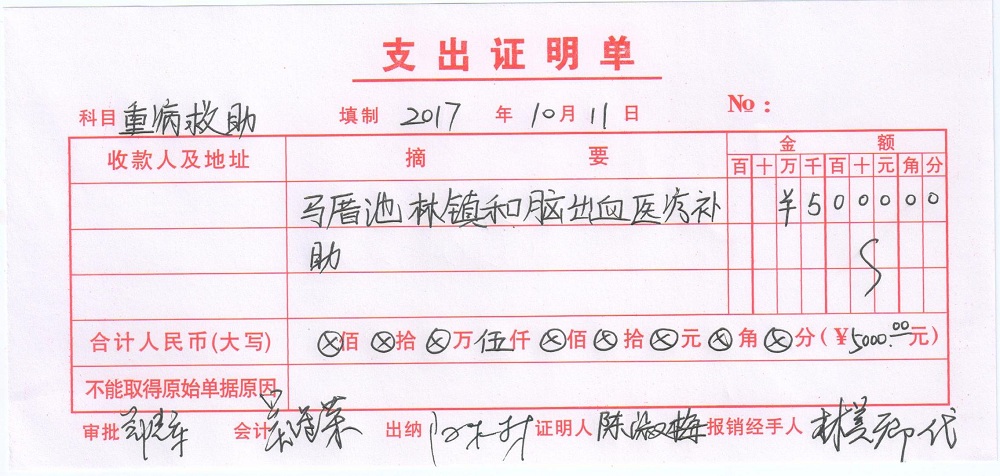 支出证明单
科目 重病救助 填制 2017 年 10 月 11 日 No：
收款人及地址 摘要 金额
百 十 万 千 百 十 元 角 分
马厝池林镇和脑出血医疗补 ¥500000
助
合计人民币(大写) ⊗佰⊗拾⊗万伍仟⊗佰⊗拾⊗元⊗角⊗分(¥5000.00元)
不能取得原始单据原因
审批 会计 出纳 证明人 陈淑梅 报销经手人 林美卿代